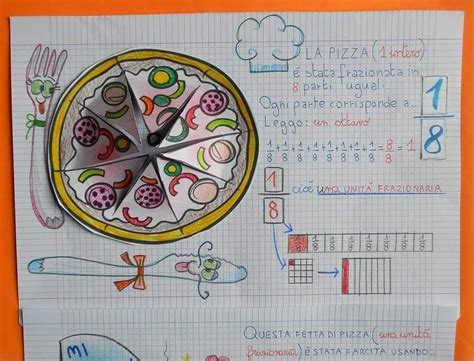 LA PIZZA (1 intero)
é stata frazionata in
8 parti uguali
Ogni parte corrisponde a...
1/8
Leggo: un ottavo
1/8+1/8+1/8+1/8+1/8+1/8+1/8+1/8=8/8=1
1/8 cioé una UNITÁ FRAZIONARIA
1/8 1/8 1/8 1/8 1/8 1/8 1/8 1/8
QUESTA FETTA DI PIZZA (una unitá
frazionaria) É STATA FARCITA USANDO...
MI